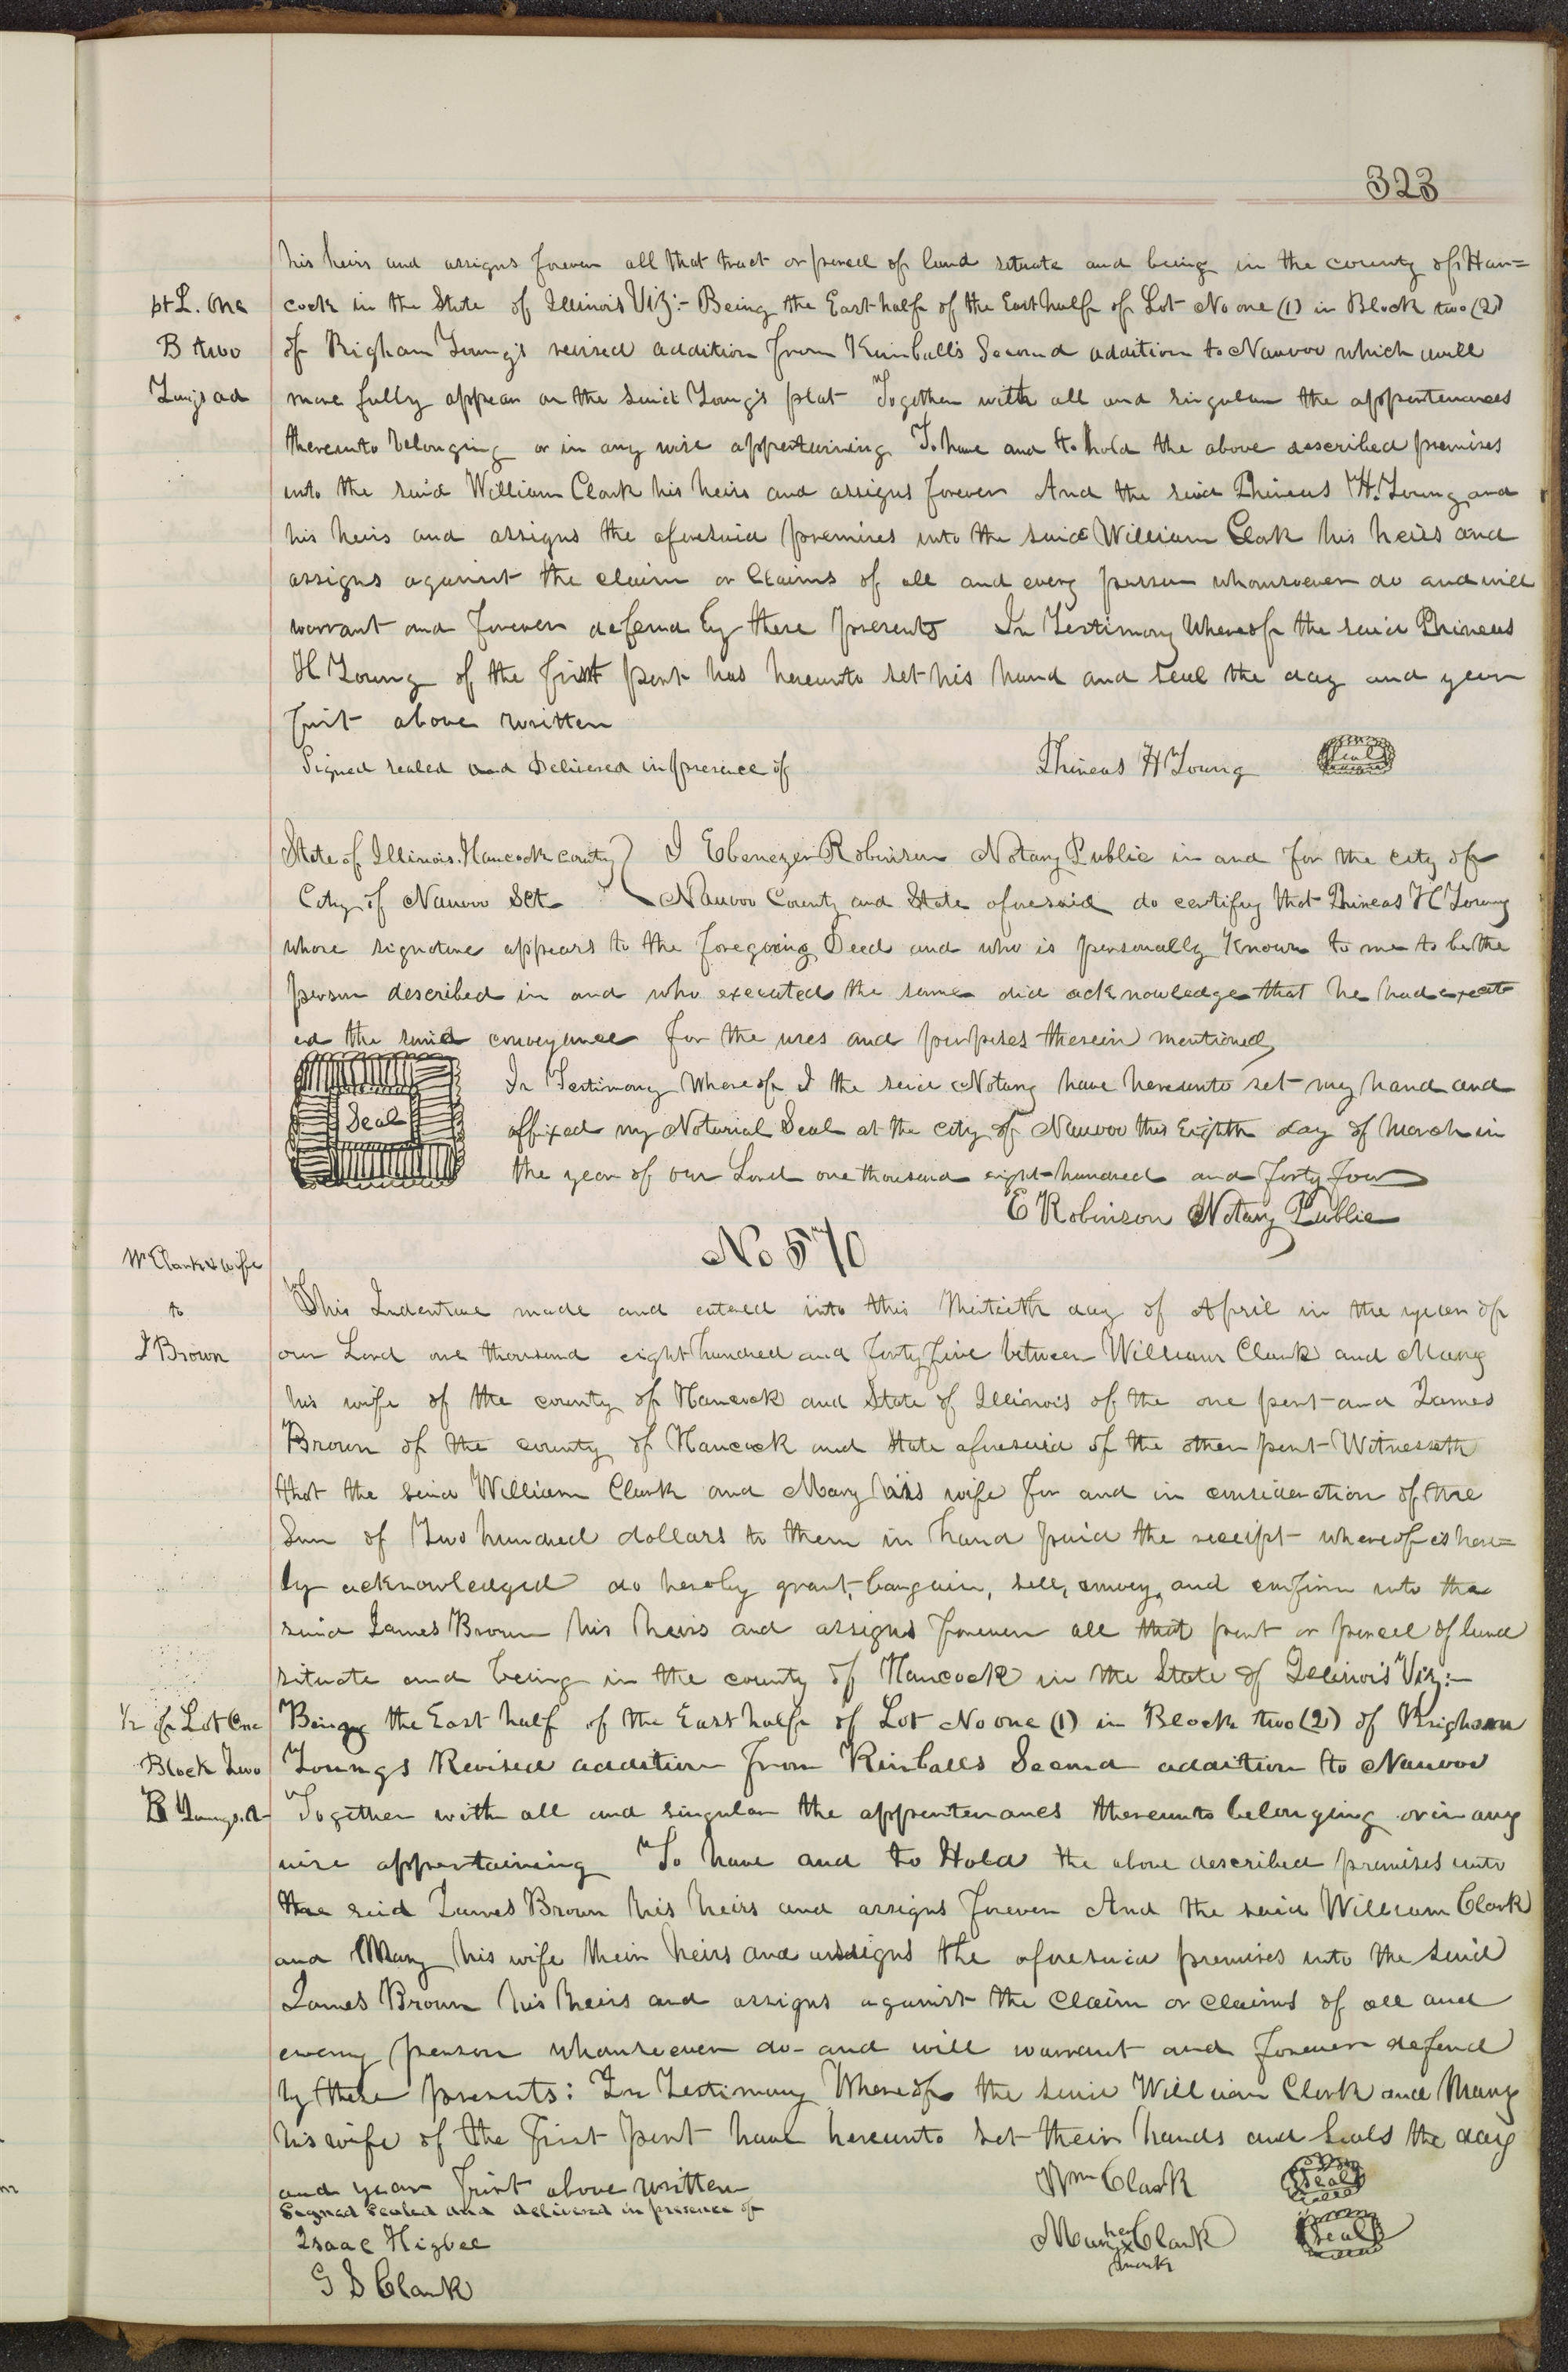 323
his heirs and assigns forever all that tract or parcel of land situate and being in the county of Han=
pt L. One
cock in the State of Illinois Viz:- Being the East half of the East half of Lot No one (1) in Block two (2)
B two
of Brigham Young's revised addition from Kimball's Second addition to Nauvoo which will
Youngs ad
more fully appear on the said Young's plat Together with all and singular the appertenances
thereunto belonging or in any wise appertaining To have and to hold the above described premises
unto the said William Clark his heirs and assigns forever And the said Phineas H. Young and
his heirs and assigns the aforesaid premises unto the said William Clark his heirs and
assigns against the claim or Claims of all and every person whomsoever do and will
warrant and forever defend by these presents In Testimony Whereof the said Phineas
H Young of the first part has hereunto set his hand and seal the day and year
first above written
Signed sealed and Delivered in presence of
Phineas H Young Seal
State of Illinois. Hancock county } I Ebenezer Robinson Notary Public in and for the city of
City of Nauvoo Sct. Nauvoo County and State aforesaid do certify that Phineas H Young
whose signature appears to the foregoing Deed and who is personally Known to me to be the
person described in and who executed the same did acknowledge that he had execut
ed the said conveyance for the uses and purposes therein mentioned
Seal
In Testimony Whereof I the said Notary have hereunto set my hand and
affixed my Notarial Seal at the city of Nauvoo this Eighth day of March in
the year of our Lord one thousand eight-hundred and forty four
E Robinson Notary Public
No 570
Wm Clark & wife
to
J Brown
This Indenture made and entered into this thirtieth day of April in the year of
our Lord one thousand eight hundred and forty five between William Clark and Mary
his wife of the county of Hancock and State of Illinois of the one part and James
Brown of the county of Hancock and State aforesaid of the other part Witnesseth
that the said William Clark and Mary his wife for and in consideration of the
Sum of Two hundred dollars to them in hand paid the receipt whereof is here=
by acknowledged do hereby grant, bargain, sell, convey, and confirm unto the
said James Brown his heirs and assigns forever all that part or parcel of land
situate and being in the county of Hancock in the State of Illinois Viz:-
1/2 of Lot One
Being the East half of the East half of Lot No one (1) in Block two (2) of Brigham
Block Two
Youngs Revised addition from Kimballs Second addition to Nauvoo
B Youngs. A
Together with all and singular the appertenances thereunto belonging or in any
wise appertaining To have and to Hold the above described premises unto
the said James Brown his heirs and assigns forever And the said William Clark
and Mary his wife their heirs and assigns the aforesaid premises unto the said
James Brown his heirs and assigns against the claim or claims of all and
every person whomsoever do and will warrant and forever defend
by these presents: In Testimony Whereof the said William Clark and Mary
his wife of the first part have hereunto set their hands and seals the day
and year first above written
Wm Clark Seal
Signed Sealed and delivered in presence of
Isaac Higbee
Mary her x mark Clark Seal
G S Clark